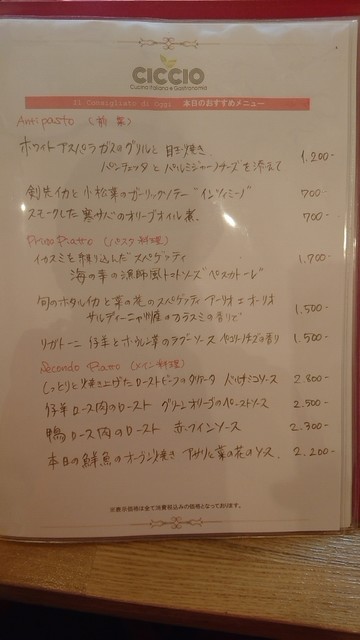 CICCIO
Cucina Italiana e Gastronomia
Il Consigliato di Oggi 本日のおすすめメニュー
Antipasto (前菜)
ホワイトアスパラガスのグリルと目玉焼き
パンチェッタとパルミジャーノチーズを添えて 1.200-
剣先イカと小松菜のガーリックソテー"インツィミーノ" 700-
スモークした寒サバのオリーブオイル煮. 700-
Primo Piatto (パスタ料理)
イカスミを練り込んだスパゲッティ 1.700-
海の幸の漁師風トマトソース"ペスカトーレ"
旬のホタルイカと菜の花のスパゲッティ アーリオ エ オーリオ
サルディーニャ州産のカラスミの香りで 1.500-
リガトーニ 仔羊とホウレン草のラグーソース ペコリーノチーズの香り 1.500-
Secondo Piatto (メイン料理)
しっとりと焼き上げたローストビーフのタリアータ バルサミコソース 2.800-
仔羊ロース肉のロースト グリーンオリーブのペーストソース 2.500-
鴨ロース肉のロースト 赤ワインソース 2.300-
本日の鮮魚のオーブン焼き アサリと菜の花のソース. 2.200-
※表示価格は全て消費税込みの価格となっております。